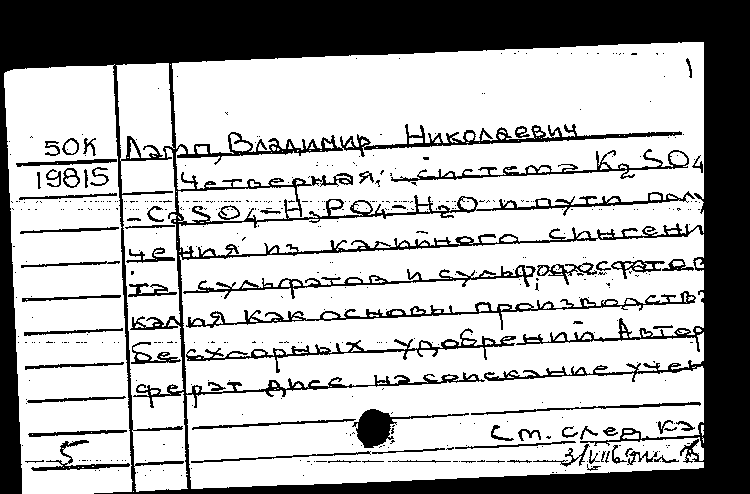 1
50К Лэмп, Владимир Николаевич
19815 Четверная система K2SO4
-CaSO4-H3PO4-H2O и пути полу
чения из калийного сингени
та сульфатов и сульфофосфатов
калия как основы производства
бесхлорных удобрений. Авторе
ферат дисс. на соискание учен
См. след. кар
5